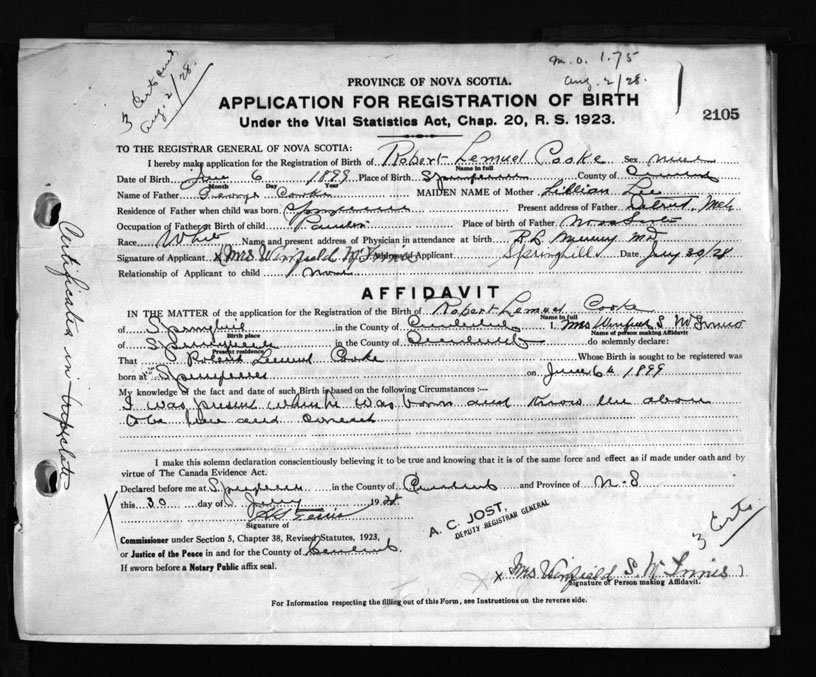 3 Certs
Aug. 2/28.
m.o. 1.75
Aug. 2/28.
PROVINCE OF NOVA SCOTIA.
APPLICATION FOR REGISTRATION OF BIRTH
2105
Under the Vital Statistics Act, Chap. 20, R. S. 1923.
TO THE REGISTRAR GENERAL OF NOVA SCOTIA:
I hereby make application for the Registration of Birth of Robert Lemuel Cooke Sex
Name in full
Date of Birth June 6 1899 Place of Birth County of
Month Day Year
Name of Father George Cooke MAIDEN NAME of Mother Lillian
Residence of Father when child was born Present address of Father Detroit, Mch
Occupation of Father at Birth of child Place of Birth of Father Nova Scotia
Race White Name and present address of Physician in attendance at birth M.D.
Signature of Applicant x Mrs Winfield McInnis Address of Applicant Springhill Date July 30/28
Relationship of Applicant to child
AFFIDAVIT
IN THE MATTER of the application for the Registration of the Birth of Robert Lemuel Cooke
Name in full
of Springhill in the County of Cumberland I, Mrs Winfield S. McInnis
Birth place Name of person making Affidavit
of Springhill in the County of Cumberland do solemnly declare:
Present residence
That Robert Lemuel Cooke Whose Birth is sought to be registered was
born at Springhill on June 6th 1899
My knowledge of the fact and date of such Birth is based on the following Circumstances :—
I was present when he was born and know the above
to be true and correct
I make this solemn declaration conscientiously believing it to be true and knowing that it is of the same force and effect as if made under oath and by
virtue of The Canada Evidence Act.
Declared before me at Springhill in the County of Cumberland and Province of N.S
this 30 day of July 1928
Signature of
A. C. JOST,
DEPUTY REGISTRAR GENERAL
Commissioner under Section 5, Chapter 38, Revised Statutes, 1923,
or Justice of the Peace in and for the County of Cumberland
If sworn before a Notary Public affix seal.
3 Certs.
x Mrs Winfield S. McInnis
Signature of Person making Affidavit.
For Information respecting the filling out of this Form, see Instructions on the reverse side.
Certificates in